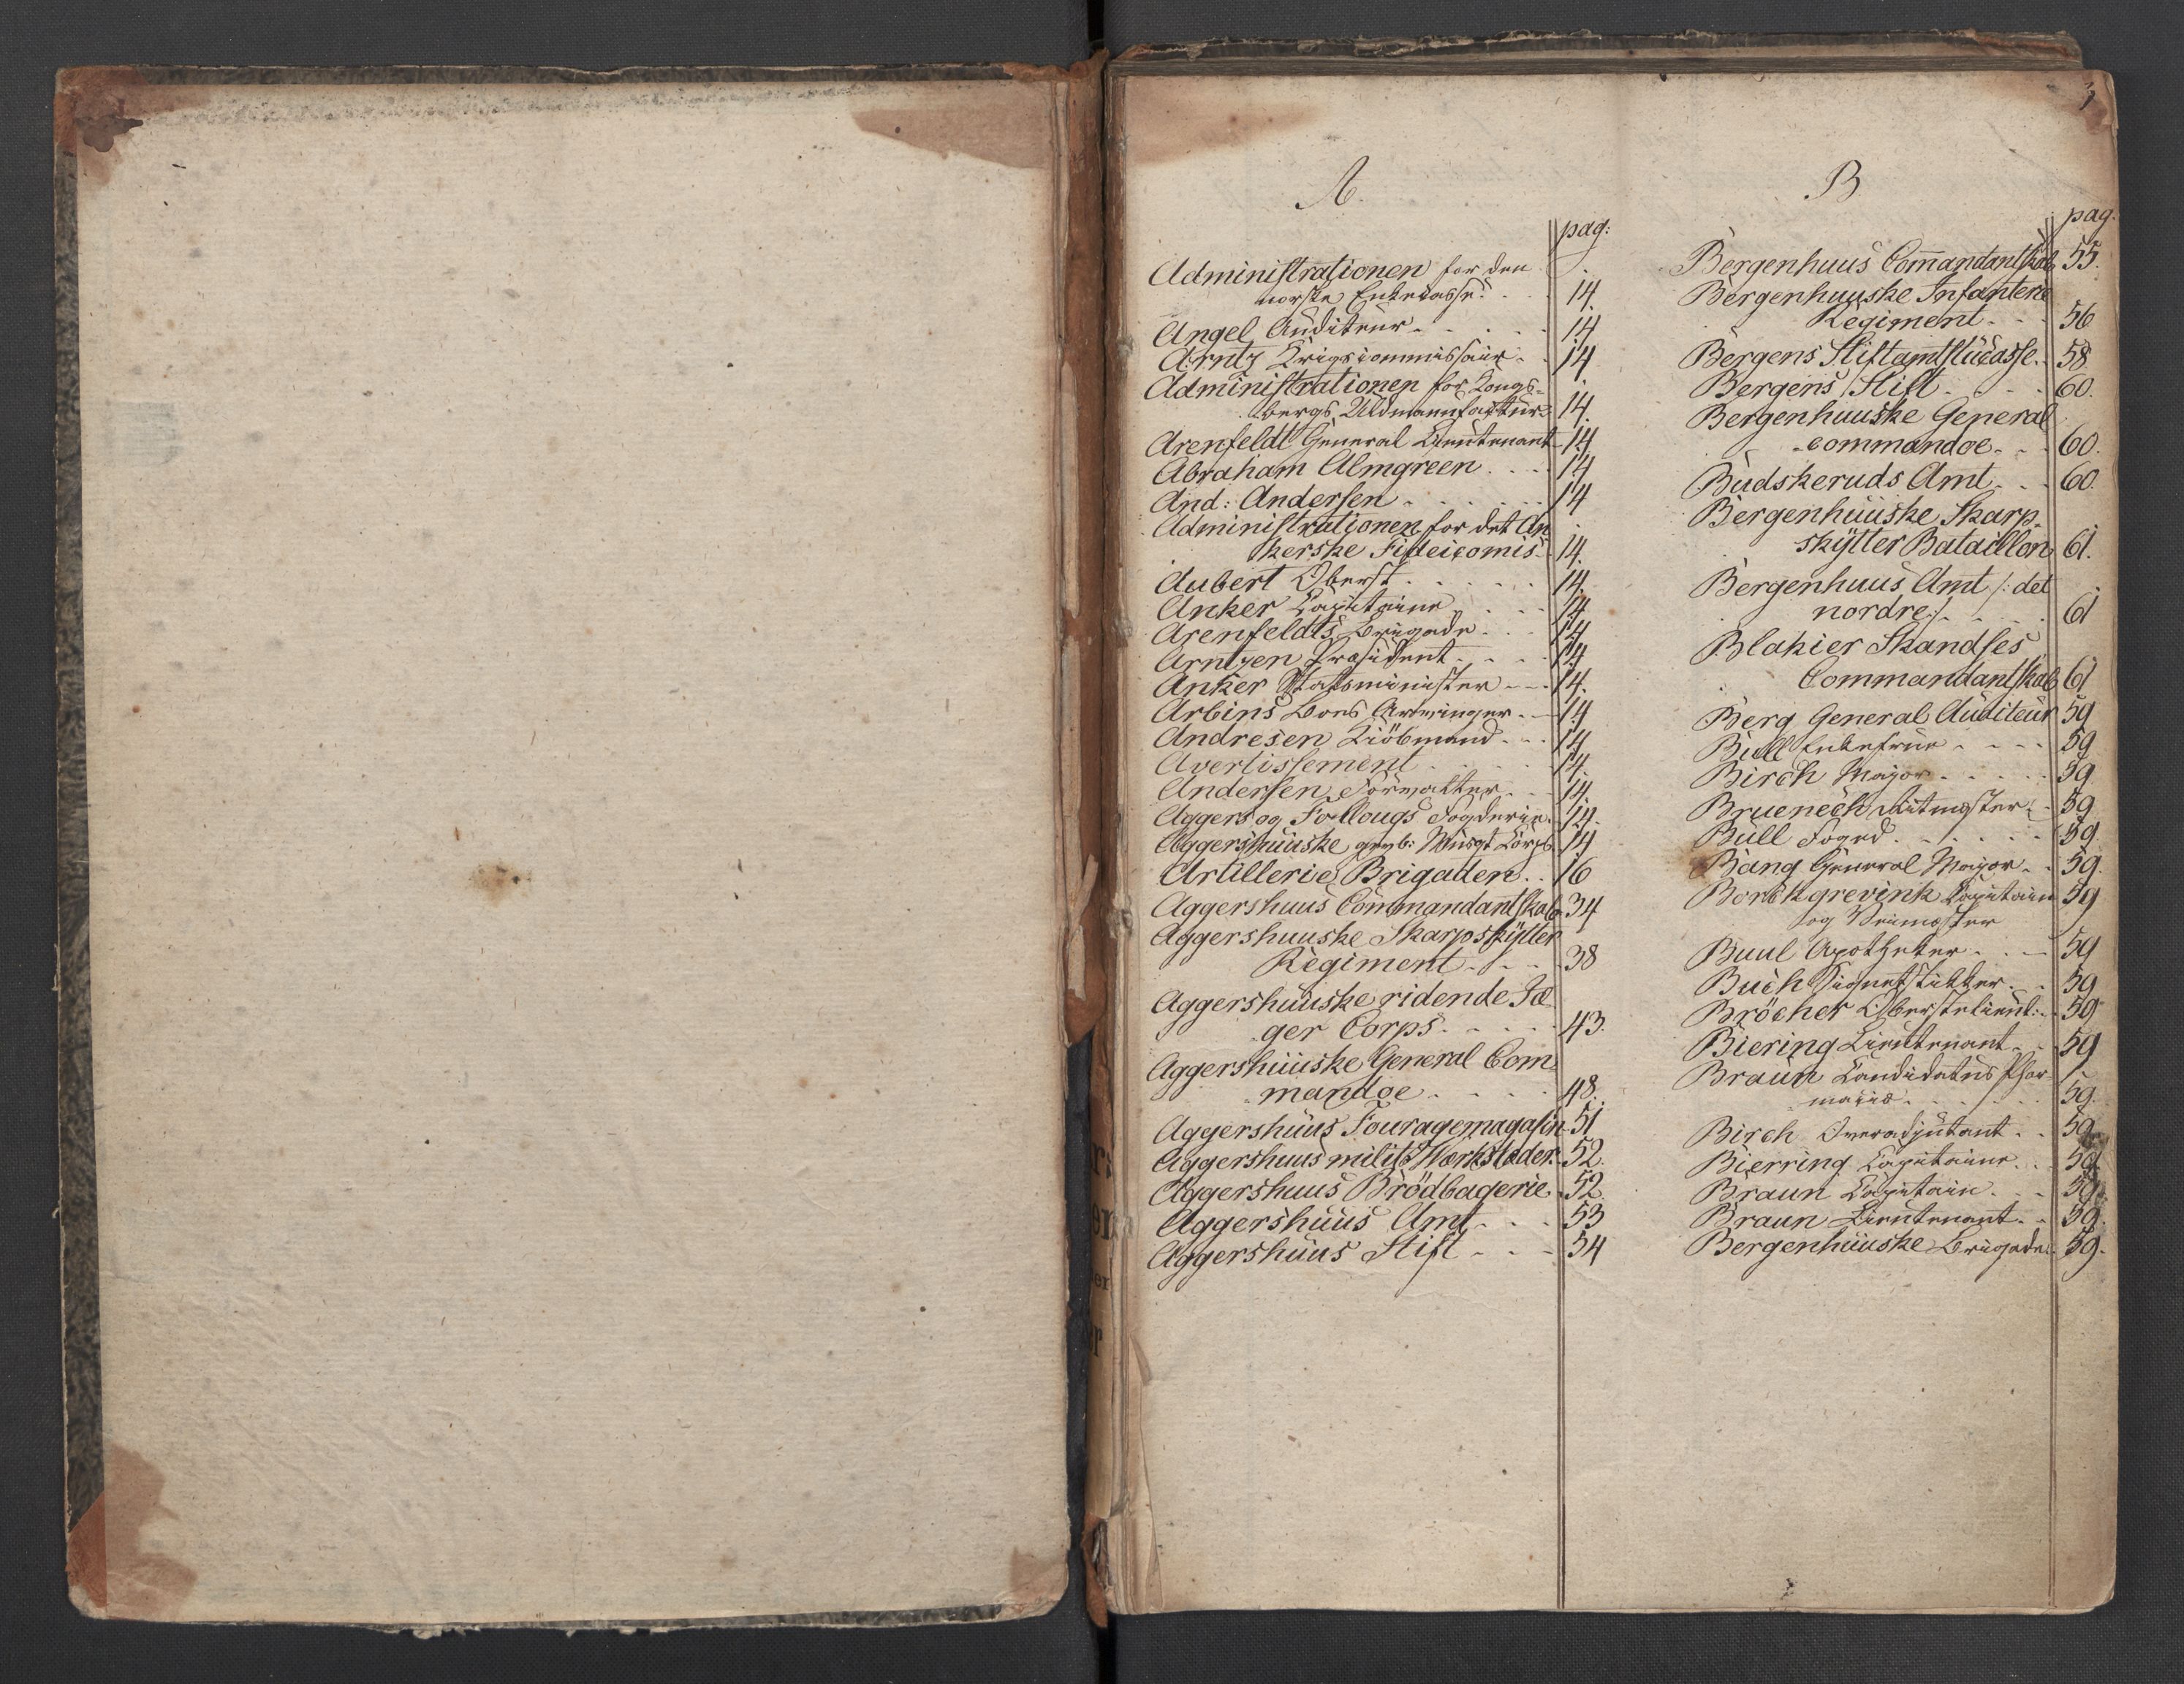 A.
pag:
Administrationen for den
norske Enkecasse 14.
Angel Auditeur 14
Arntz Krigscommissair 14
Administrationen for Kongs-
bergs Uldmanufactur 14.
Arenfeldt General Lieutenant 14
Abraham Almgreen 14
And: Andersen 14
Administrationen for det An
kerske Fideicomis 14.
Aubert Oberst 14.
Anker Capitaine 14
Arenfeldts Brigade 14
Arntzen Præsident 14
Anker Statsminister 14.
Arbins Boes Arvinger 14
Andresen Kiöbmand 14
Avertissement 14.
Andersen Forvalter 14.
Aggers og Follougs Fogderie 14.
Aggershuuske gevb: Musqt Corps 14
Artillerie Brigaden 16
Aggershuus Commandantskab 34
Aggershuuske Skarpskytter
Regiment 38
Aggershuuske ridende Jæ
ger Corps 43.
Aggershuuske General Com
mandoe 48.
Aggershuus Fouragemagasin 51
Aggershuus milit Værksteder 52.
Aggershuus Brödbagerie 52
Aggershuus Amt 53
Aggershuus Stift 54
B
pag.
Bergenhuus Com̄andantskab 55.
Bergenhuuske Infanterie
Regiment 56
Bergens Stiftamtstuecasse 58
Bergens Stift 60.
Bergenhuuske General
commandoe 60.
Budskeruds Amt 60.
Bergenhuuske Skarp-
skÿtter Bataillon 61.
Bergenhuus Amt /: det
nordre :/ 61
Blakier Skandses
Commandantskab 61
Berg General Auditeur 59
Bull Enkefrue 59
Birch Major 59
Bruenech Ritmester 59
Bull Foged 59
Bang General Major 59.
Borchgrevink Capitain 59
og Veimester
Buul Apotheker 59
Buch Signetstikker 59
Bröcher Oberstelieut: 59
Biering Lieutenant 59
Braun Candidatus Phar-
maciæ 59.
Birch Overadjutant 59
Bierring Capitaine 59
Braun Capitain 59
Braun Lieutenant 59.
Bergenhuuske Brigade 59.